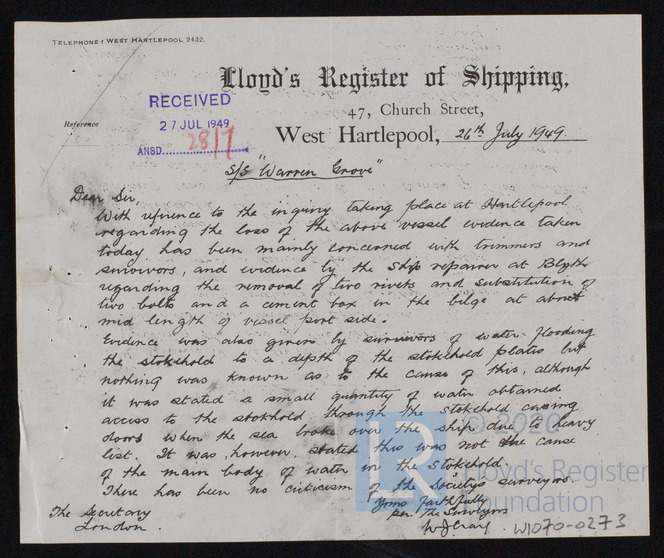 TELEPHONE: WEST HARTLEPOOL 2432.
Lloyd's Register of Shipping,
47, Church Street,
West Hartlepool, 26th July 1949
Reference
RECEIVED
27 JUL 1949
ANSD. 28/7
S/S "Warren Grove"
Dear Sir,
With reference to the inquiry taking place at Hartlepool
regarding the loss of the above vessel evidence taken
today has been mainly concerned with trimmers and
survivors, and evidence by the Ship repairer at Blyth
regarding the removal of two rivets and substitution of
two bolts and a cement box in the bilge at about
mid length of vessel port side.
Evidence was also given by survivors of water flooding
the stokehold to a depth of the stokehold plates but
nothing was known as to the cause of this, although
it was stated a small quantity of water obtained
access to the stokhold through the stokehold casing
doors when the sea broke over the ship due to heavy
list. It was, however, stated this was not the cause
of the main body of water in the stokehold.
There has been no criticism of the Society's surveyors.
Yours faithfully
per. The Surveyors
W J Craig
The Secretary
London.
W1070-0273
LR
© 2020
Lloyd's Register
Foundation